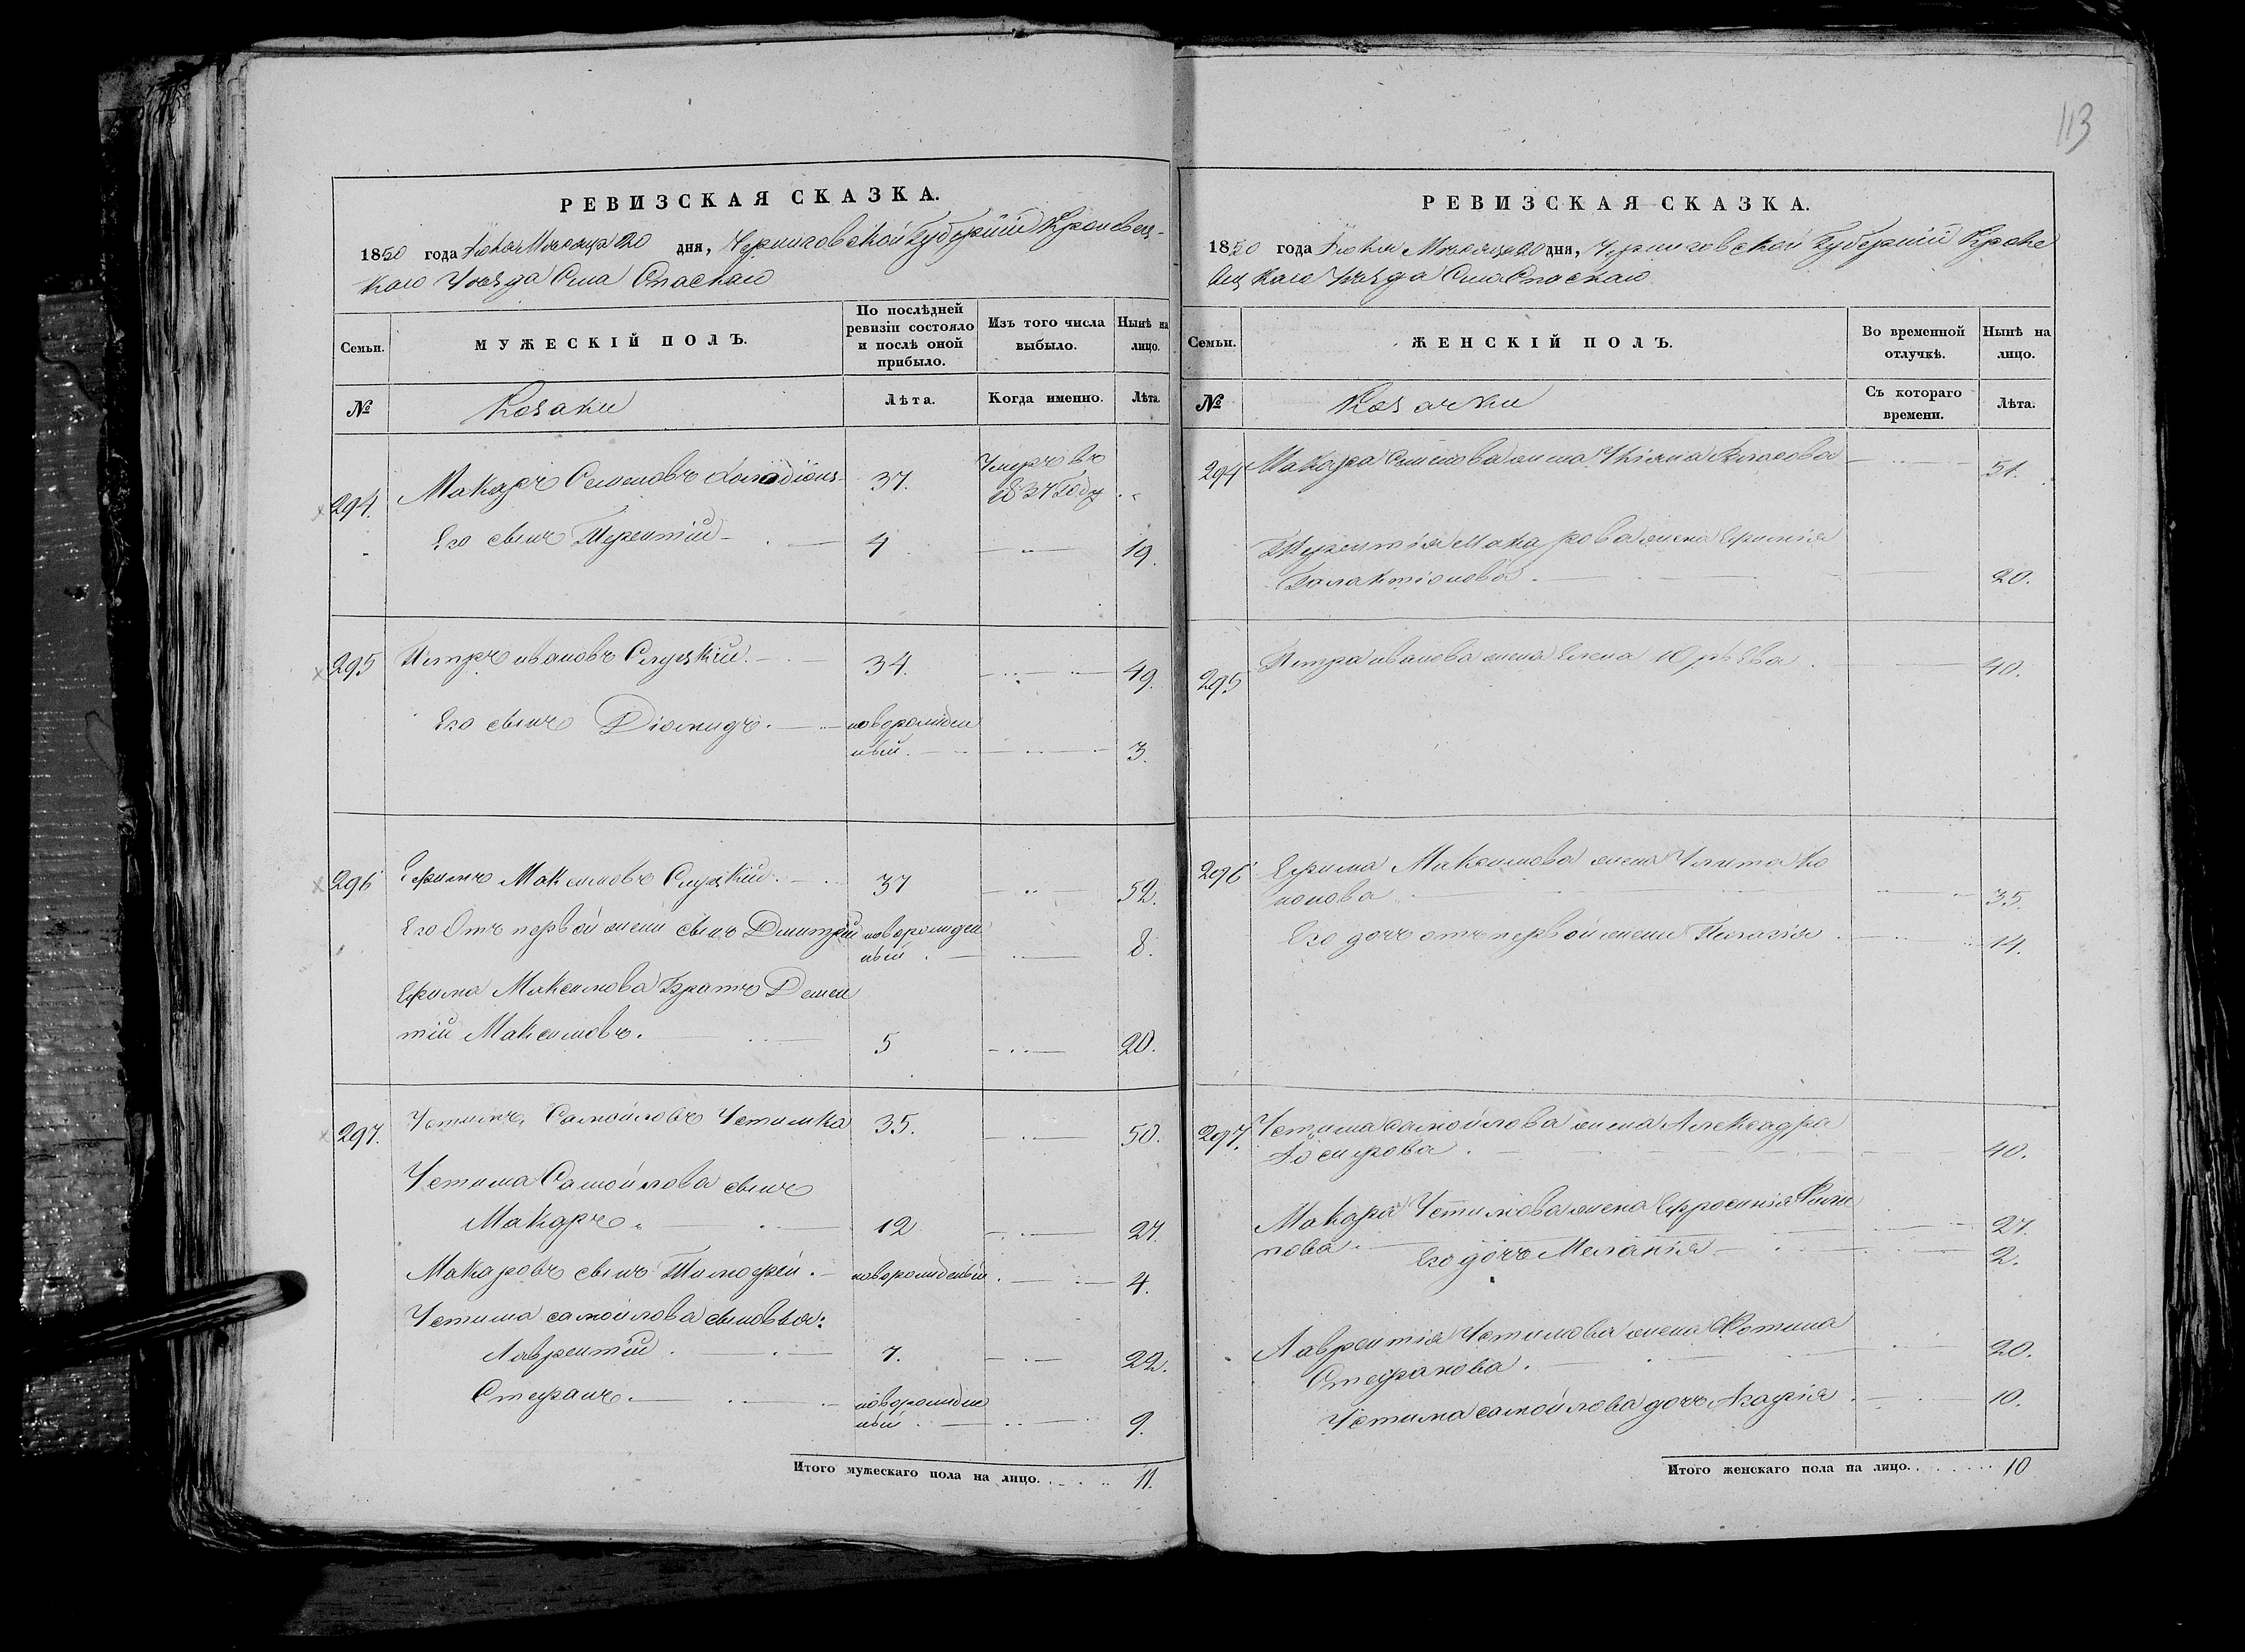 РЕВИЗСКАЯ СКАЗКА.
1850 года Июня Месяца 20 дня, Черниговской Губерніи Кролевец-
каго Уезда Села Спаскаго
Семьи.
МУЖЕСКІЙ ПОЛЪ.
По послѣдней ревизіи состояло и послѣ оной прибыло.
Изъ того числа выбыло.
Нынѣ на лицо.
№
Козаки
Лѣта.
Когда именно.
Лѣта.
294. Макаръ Семеновъ 37. Умеръ въ 1837 году
Его сынъ Терентій 4 19.
295 Петръ Ивановъ Слуцкій. 34. 49.
Его сынъ Діомидъ. новорожден
ный. 3.
296 Ефимъ Максимовъ Слуцкій. 37 52.
Его Отъ первой жены сынъ Дмитрій новорожден
ный 8.
Ефима Максимова Братъ Демен
тій Максимовъ. 5 20.
297. Устимъ Самойловъ Устимка 35. 50.
Устима Самойлова сынъ
Макаръ 12 27
Макаровъ сынъ Тимофей. новорожденый. 4.
Устима самойлова сыновья:
Лаврентій 7. 22.
Стефанъ. новорожден
ный 9.
Итого мужескаго пола на лицо. 11.
113
РЕВИЗСКАЯ СКАЗКА.
1850 года Июня Месяца 20 дня, Черниговской Губерніи Кроле
вец каго Уезда Села Спаскаго
Семьи.
ЖЕНСКІЙ ПОЛЪ.
Во временной отлучкѣ.
Нынѣ на лицо.
№
Козачки
Съ котораго времени.
Лѣта.
294 Макара Семенова жена Власова 51.
Терентія Макарова жена Ефимія
Галактіонова. 20.
295 Петра иванова жена Елена Юрьева 40.
296 Ефима Максимова жена Улита Ко
нонова 35.
Его дочь отъ первой жены Пелагія 14.
297. Устима самойлова жена Александра
40.
Макара Устимова жена Ефросинія Филип
пова 27.
Его дочь Меланія 2.
Лаврентія Устимова жена Фотина
Стефанова. 20.
Устима самойлова дочь Агафія 10.
Итого женскаго пола на лицо. 10